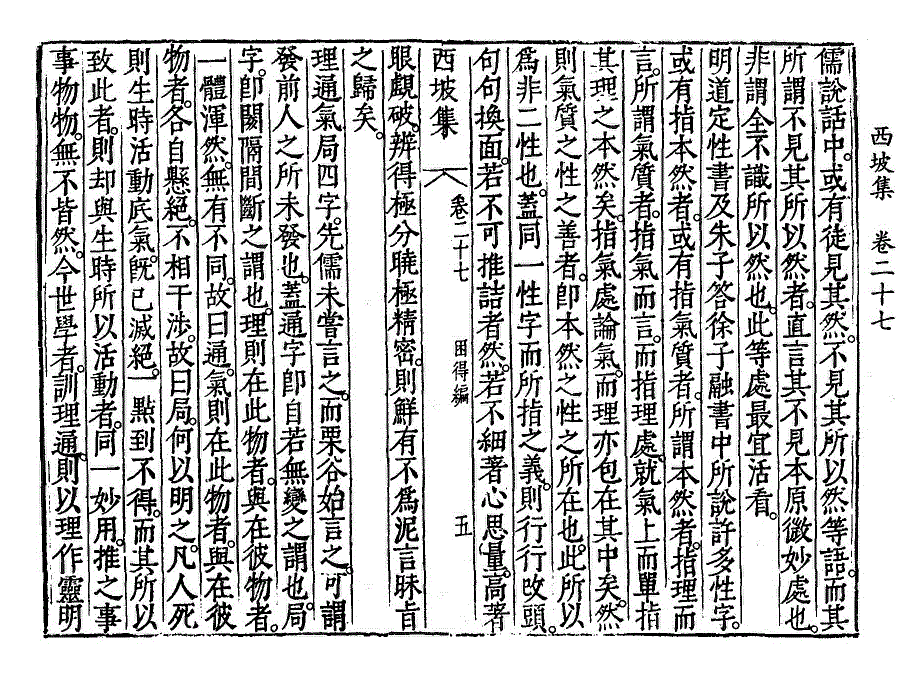 西坡集　卷二十七
儒說話中。或有徒見其然。不見其所以然等語。而其
所謂不見其所以然者。直言其不見本原微妙處也。
非謂全不識所以然也。此等處最宜活看。
明道定性書及朱子答徐子融書中所說許多性字。
或有指本然者。或有指氣質者。所謂本然者。指理而
言。所謂氣質者。指氣而言。而指理處。就氣上而單指
其理之本然矣。指氣處論氣。而理亦包在其中矣。然
則氣質之性之善者。卽本然之性之所在也。此所以
爲非二性也。蓋同一性字而所指之義。則行行改頭。
句句換面。若不可推詰者然。若不細著心思量。高著
西坡集　卷二十七　困得編　五
眼覰破。辨得極分曉極精密。則鮮有不爲泥言昧旨
之歸矣。
理通氣局四字。先儒未嘗言之。而栗谷始言之。可謂
發前人之所未發也。蓋通字卽自若無變之謂也。局
字。卽闕隔間斷之謂也。理則在此物者。與在彼物者。
一體渾然。無有不同。故曰通。氣則在此物者。與在彼
物者。各自懸絕。不相干涉。故曰局。何以明之。凡人死
則生時活動底氣。旣已滅絕。一點到不得。而其所以
致此者。則却與生時所以活動者。同一妙用。推之事
事物物。無不皆然。今世學者。訓理通。則以理作靈明